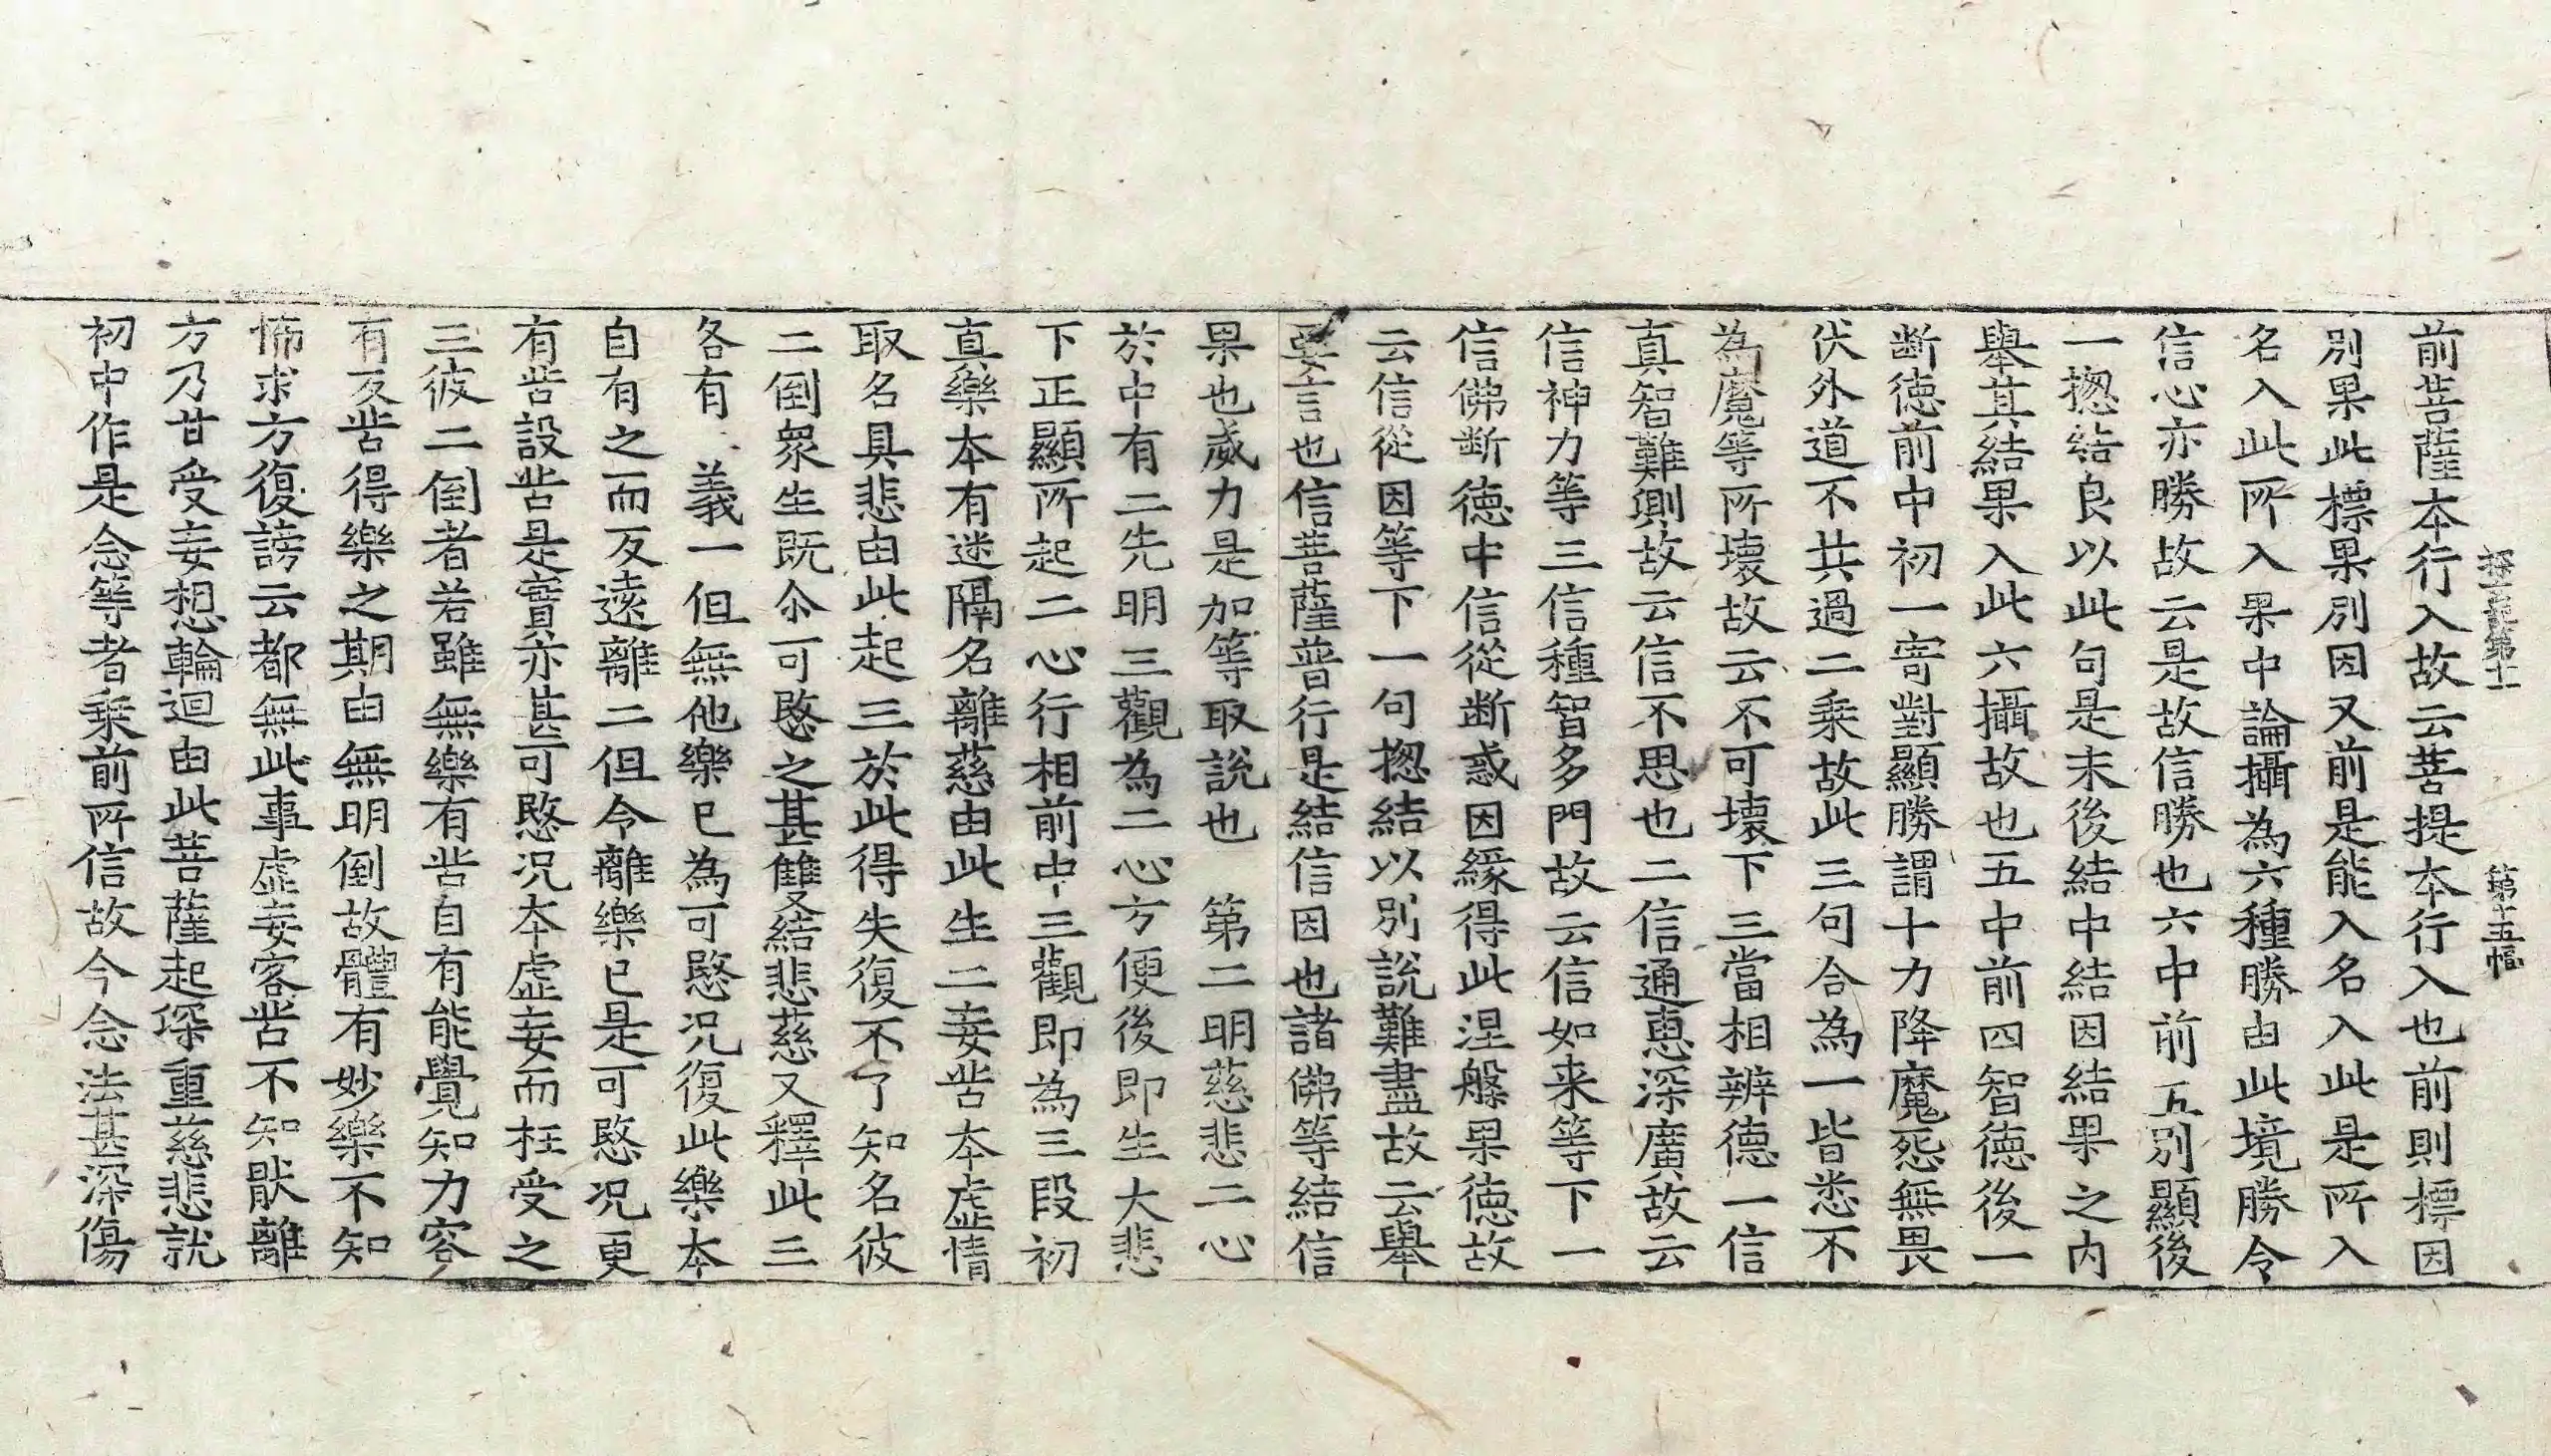 探玄記第十一 第十五幅
前菩薩本行入故云菩提本行入也前則標因
別果此標果別因又前是能入名入此是所入
名入此所入果中論攝為六種勝由此境勝令
信心亦勝故云是故信勝也六中前五別顯後
一揔結良以此句是末後結中結因結果之内
舉其結果入此六攝故也五中前四智德後一
断德前中初一寄對顯勝謂十力降魔怨無畏
伏外道不共過二乘故此三句合為一皆悉不
為魔等所壞故云不可壞下三當相辨德一信
真智難測故云信不思也二信通惠深廣故云
信神力等三信種智多門故云信如来等下一
信佛断德中信從断惑因緣得此涅槃果德故
云信從因等下一句揔結以別說難盡故云舉
要言也信菩薩普行是結信因也諸佛等結信
果也威力是加等取說也　第二明慈悲二心
於中有二先明三觀為二心方便後即生大悲
下正顯所起二心行相前中三觀即為三段初
真樂本有迷隔名離慈由此生二妄苦本虛情
取名具悲由此起三於此得失復不了知名彼
二倒衆生既尒可愍之甚雙結悲慈又釋此三
各有 義一但無他樂已為可愍況復此樂本
自有之而反遠離二但令離樂已是可愍況更
有苦設苦是實亦甚可愍況本虛妄而枉受之
三彼二倒者若雖無樂有苦自有能覺知力容
有反苦得樂之期由無明倒故體有妙樂不知
怖求方復謗云都無此事虛妄客苦不知猒離
方乃甘受妄想輪迴由此菩薩起深重慈悲就
初中作是念等者乘前所信故今念法甚深傷